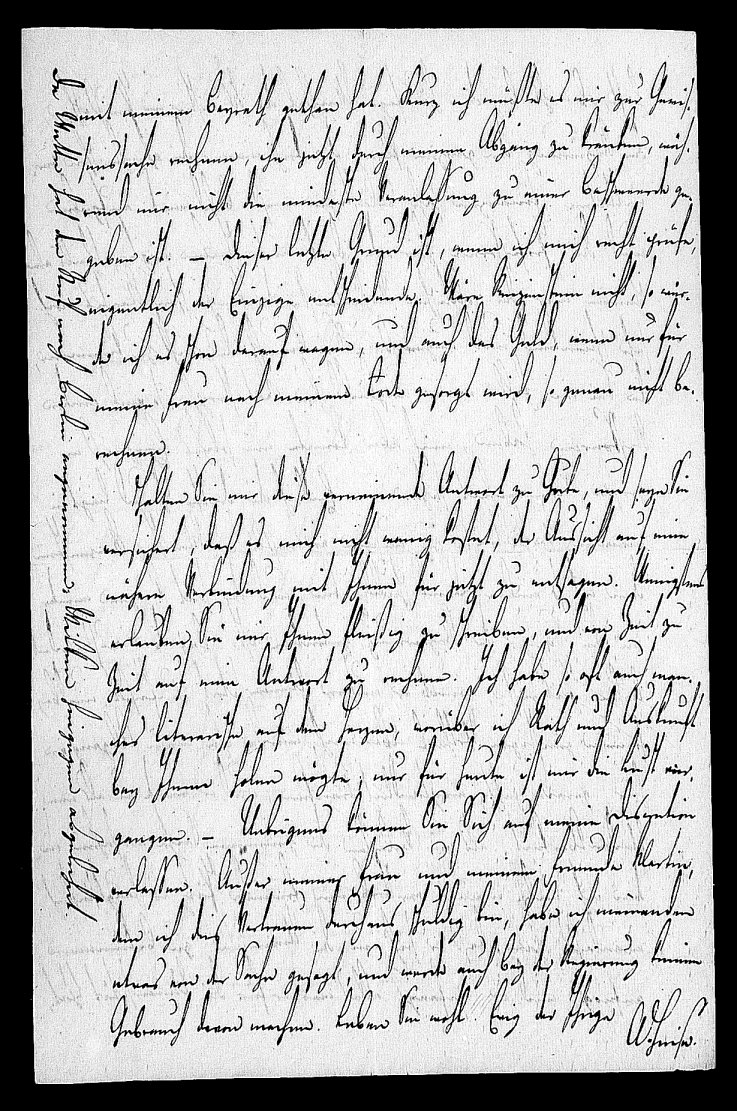 mit meinem Beyrath gethan hat. Kurz ich müßte es mir zur Gewis-
senssache rechnen, ihn jetzt durch meinen Abgang zu kränken, wäh-
rend mir nicht die mindeste Veranlassung zu einer Beschwerde ge-
geben ist. — Dieser letzte Grund ist, wenn ich mich recht prüfe,
eigentlich der Einzige entscheidende. Wäre Reizenstein nicht, so wür-
de ich es schon darauf wagen, und auch das Geld, wenn nur für
meine Frau nach meinem Tode gesorgt wird, so genau nicht be-
rechnen.
Halten Sie mir diese verneinende Antwort zu Gute, und seyn Sie
versichert, daß es mich nicht wenig kostet, der Aussicht auf eine
nähere Verbindung mit Ihnen für jetzt zu entsagen. Wenigstens
erlauben Sie mir Ihnen fleißig zu schreiben, und von Zeit zu
Zeit auf eine Antwort zu rechnen. Ich habe so oft auch man-
ches literarische auf dem Herzen, worüber ich Rath und Auskunft
bey Ihnen holen mögte; nur für heute ist mir die Lust ver-
gangen. — Uebrigens können Sie Sich auf meine Discretion
verlassen. Außer meiner Frau und meinem Freunde Martin,
dem ich dies Vertrauen durchaus schuldig bin, habe ich niemandem
etwas von der Sache gesagt, und werde auch bey der Regierung keinen
Gebrauch davon machen. Leben Sie wohl. Ewig der Ihrige
A. Heise.
De Wette hat den Ruf nach Berlin angenommen, hingegen abgelehnt.